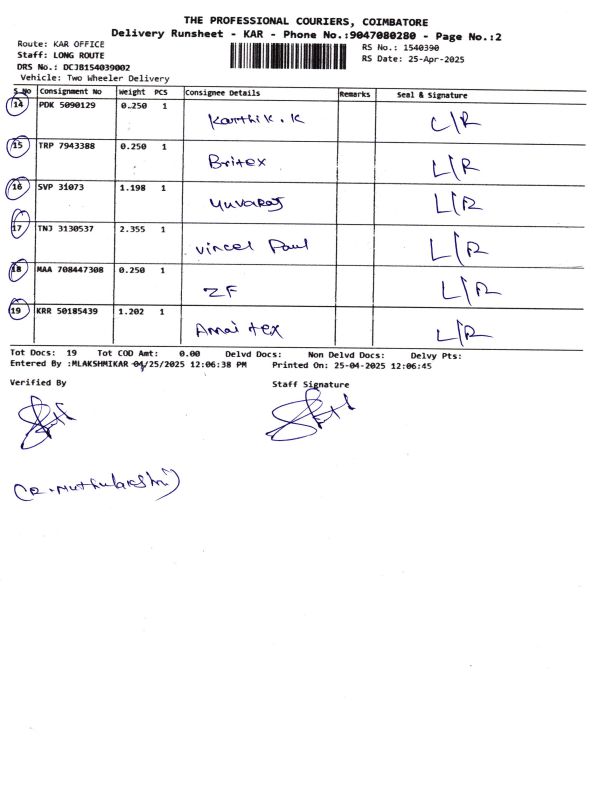 THE PROFESSIONAL COURIERS, COIMBATORE
Delivery Runsheet - KAR - Phone No.:9047080280 - Page No.:2
Route: KAR OFFICE
Staff: LONG ROUTE
DRS No.: DCJB154039002
Vehicle: Two Wheeler Delivery
RS No.: 1540390
RS Date: 25-Apr-2025
S No Consignment No Weight PCS Consignee Details Remarks Seal & Signature
14 PDK 5090129 0.250 1
Karthik. K L/R
15 TRP 7943388 0.250 1
Britex L/R
16 SVP 31073 1.198 1
Yuvaraj L/R
17 TNJ 3130537 2.355 1
Vincel Paul L/R
18 MAA 708447308 0.250 1
ZF L/R
19 KRR 50185439 1.202 1
Annai tex L/R
Tot Docs: 19 Tot COD Amt: 0.00 Delvd Docs: Non Delvd Docs: Delvy Pts:
Entered By :MLAKSHMIKAR 04/25/2025 12:06:38 PM Printed On: 25-04-2025 12:06:45
Verified By Staff Signature
(R. Muthulakshmi)